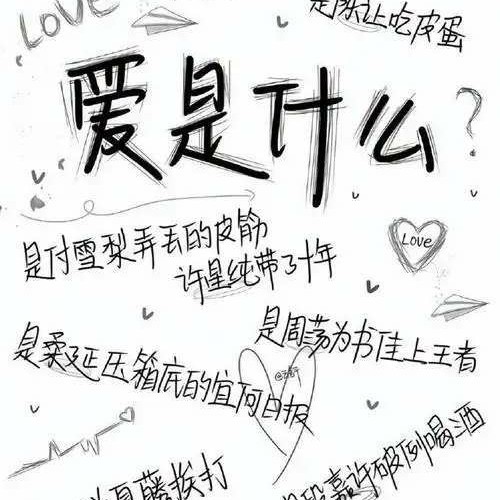 LOVE
是陈让吃皮蛋
爱是什么?
是付雪梨弄丢的皮筋
许星纯带了十年
Love
是周荡为书佳上王者
是柔延压箱底的宜何日报
藤挨打
嘉许破例喝酒